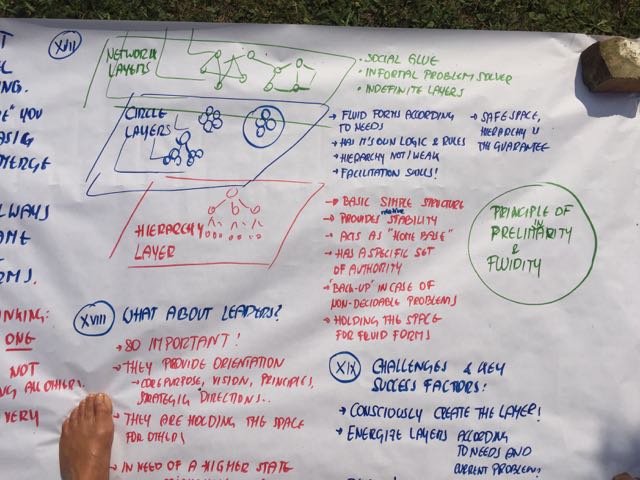 XVII
NETWORK
LAYERS
• SOCIAL GLUE
• INFORTAL PROBLEM SOLVER
• INDEFINITE LAYERS
CIRCLE
LAYERS
→ FLUID FORMS ACCORDING
TO NEEDS
→ HAS IT'S OWN LOGIC & RULES
→ HIERARCHY NOT/WEAK
→ FACILITATION SKILLS!
→ SAFE SPACE,
HIERARCHY IS
THE GUARANTEE
HIERARCHY
LAYER
→ BASIC SIMPLE STRUCTURE
→ PROVIDES relative STABILITY
→ ACTS AS "HOME BASE"
→ HAS A SPECIFIC SET
OF AUTHORITY
→ "BACK-UP" IN CASE OF
NON-DECIDABLE PROBLEMS
→ HOLDING THE SPACE
FOR FLUID FORMS
PRINCIPLE OF
PRELIMINARITY
&
FLUIDITY
XVIII WHAT ABOUT LEADERS?
→ SO IMPORTANT!
→ THEY PROVIDE ORIENTATION
→ CORE PURPOSE, VISION, PRINCIPLES,
STRATEGIC DIRECTIONS...
→ THEY ARE HOLDING THE SPACE
FOR OTHERS!
→ IN NEED OF A HIGHER STATE
XIX CHALLENGES & KEY
SUCCESS FACTORS:
→ CONSCIOUSLY CREATE THE LAYER!
→ ENERGIZE LAYERS ACCORDING
TO NEEDS AND
CURRENT PROBLEMS
YOU
EMERGE
ALWAYS
ONE
NOT
ALL OTHERS.
VERY